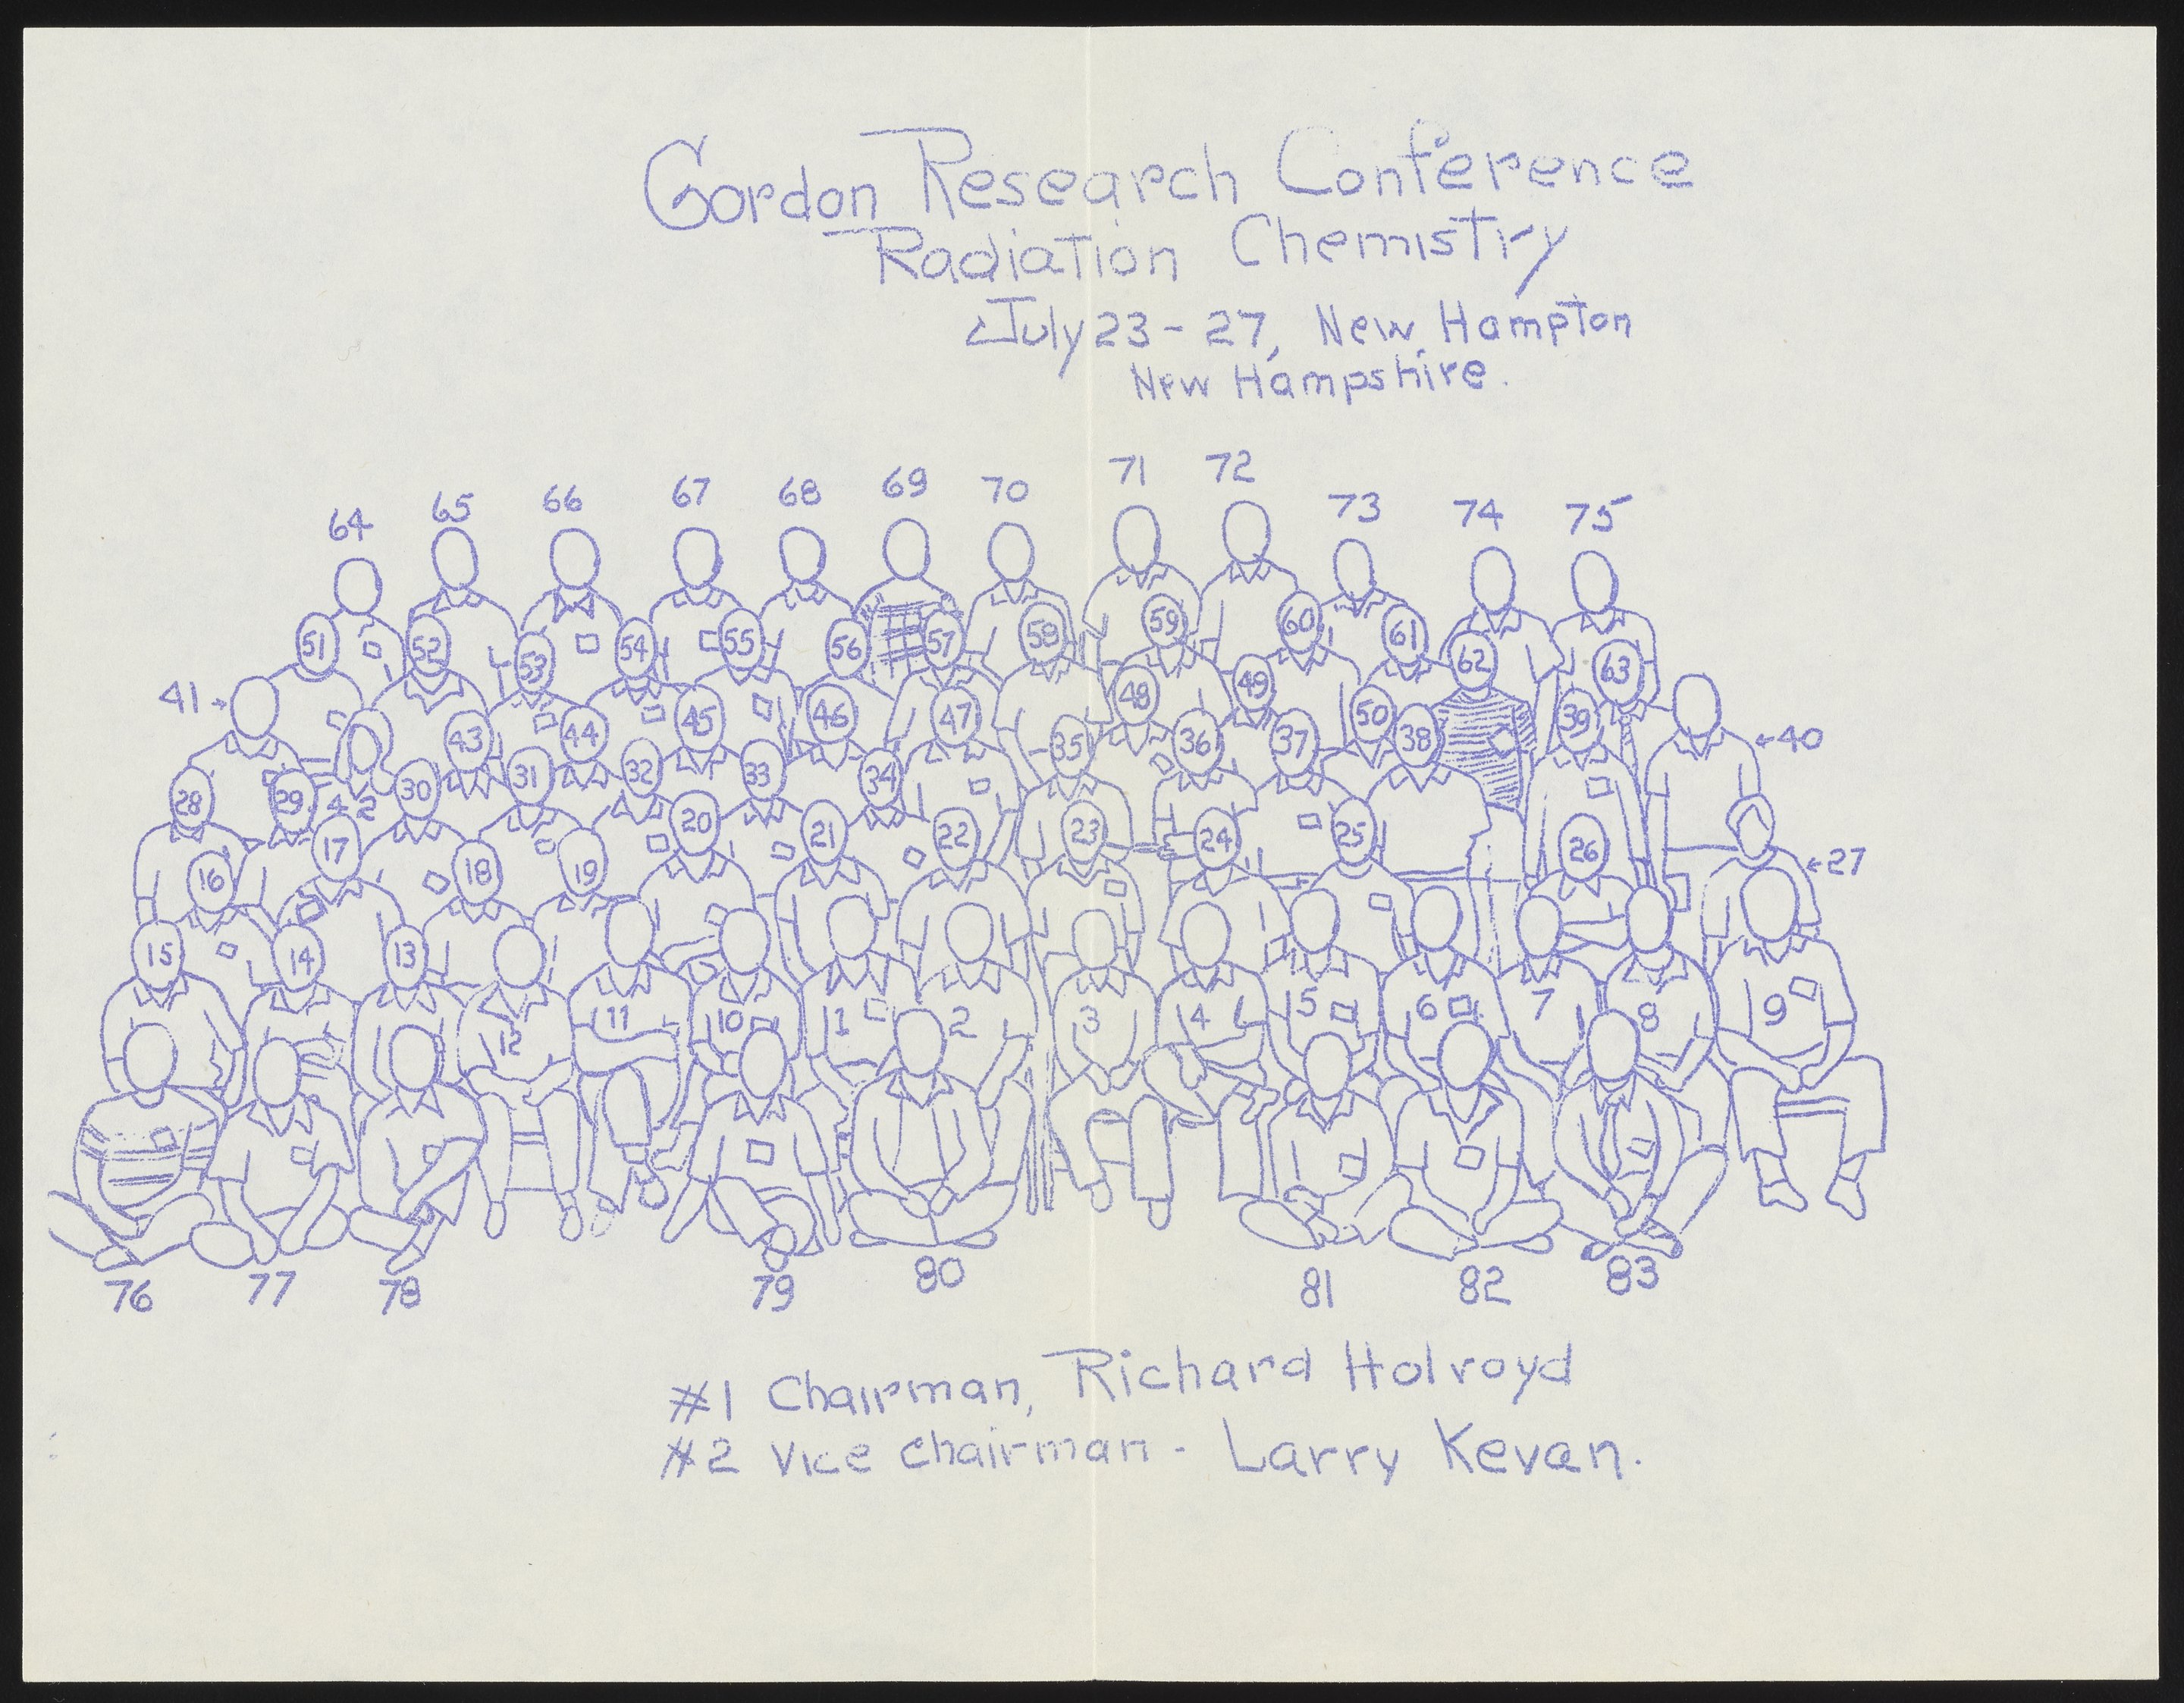 Gordon Research Conference
Radiation Chemistry
July 23 - 27, New Hampton
New Hampshire.
64 65 66 67 68 69 70 71 72 73 74 75
51 52 53 54 55 56 57 58 59 60 61 62 63
41 42 43 44 45 46 47 48 49 50
28 29 30 31 32 33 34 35 36 37 38 39 40
16 17 18 19 20 21 22 23 24 25 26 27
15 14 13 12 11 10 1 2 3 4 5 6 7 8 9
76 77 78 79 80 81 82 83
#1 Chairman, Richard Holroyd
#2 Vice Chairman - Larry Kevan.